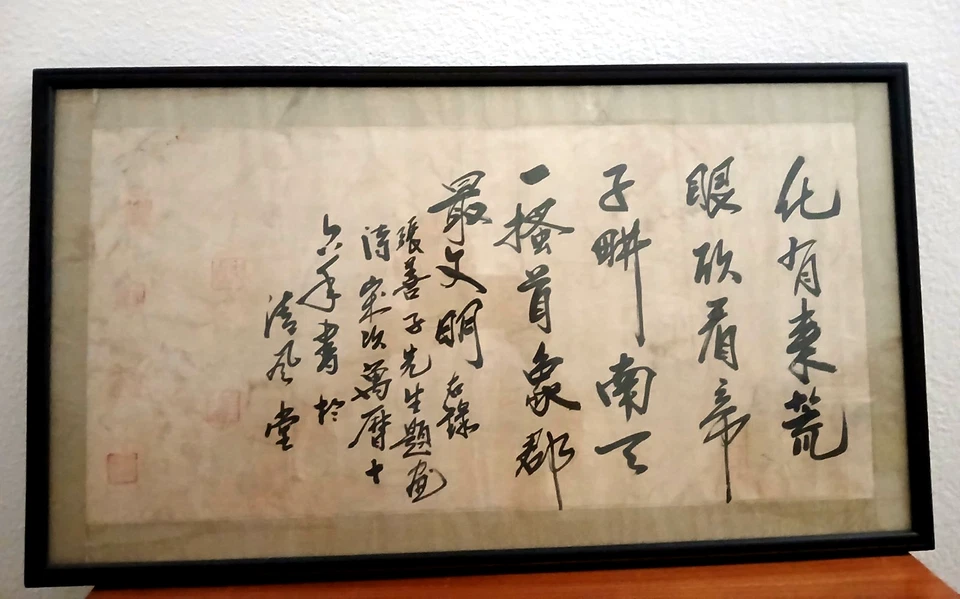 化有来荒
眼欣看帝
子畊南天
一搔首象郡
最文明 右錄
張善子先生題画
詩 歲次萬曆十
六年書於
清风堂